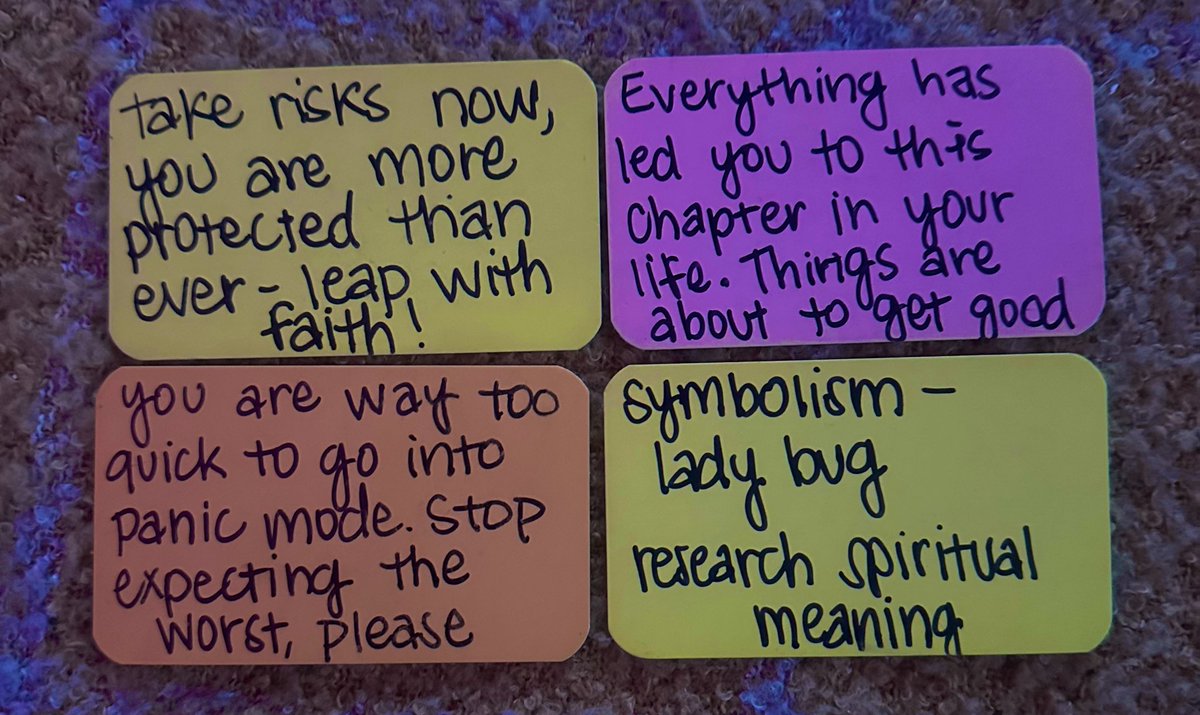 take risks now,
you are more
protected than
ever - leap with
faith!
Everything has
led you to this
chapter in your
life. Things are
about to get good
you are way too
quick to go into
panic mode. Stop
expecting the
worst, please
symbolism -
lady bug
research spiritual
meaning